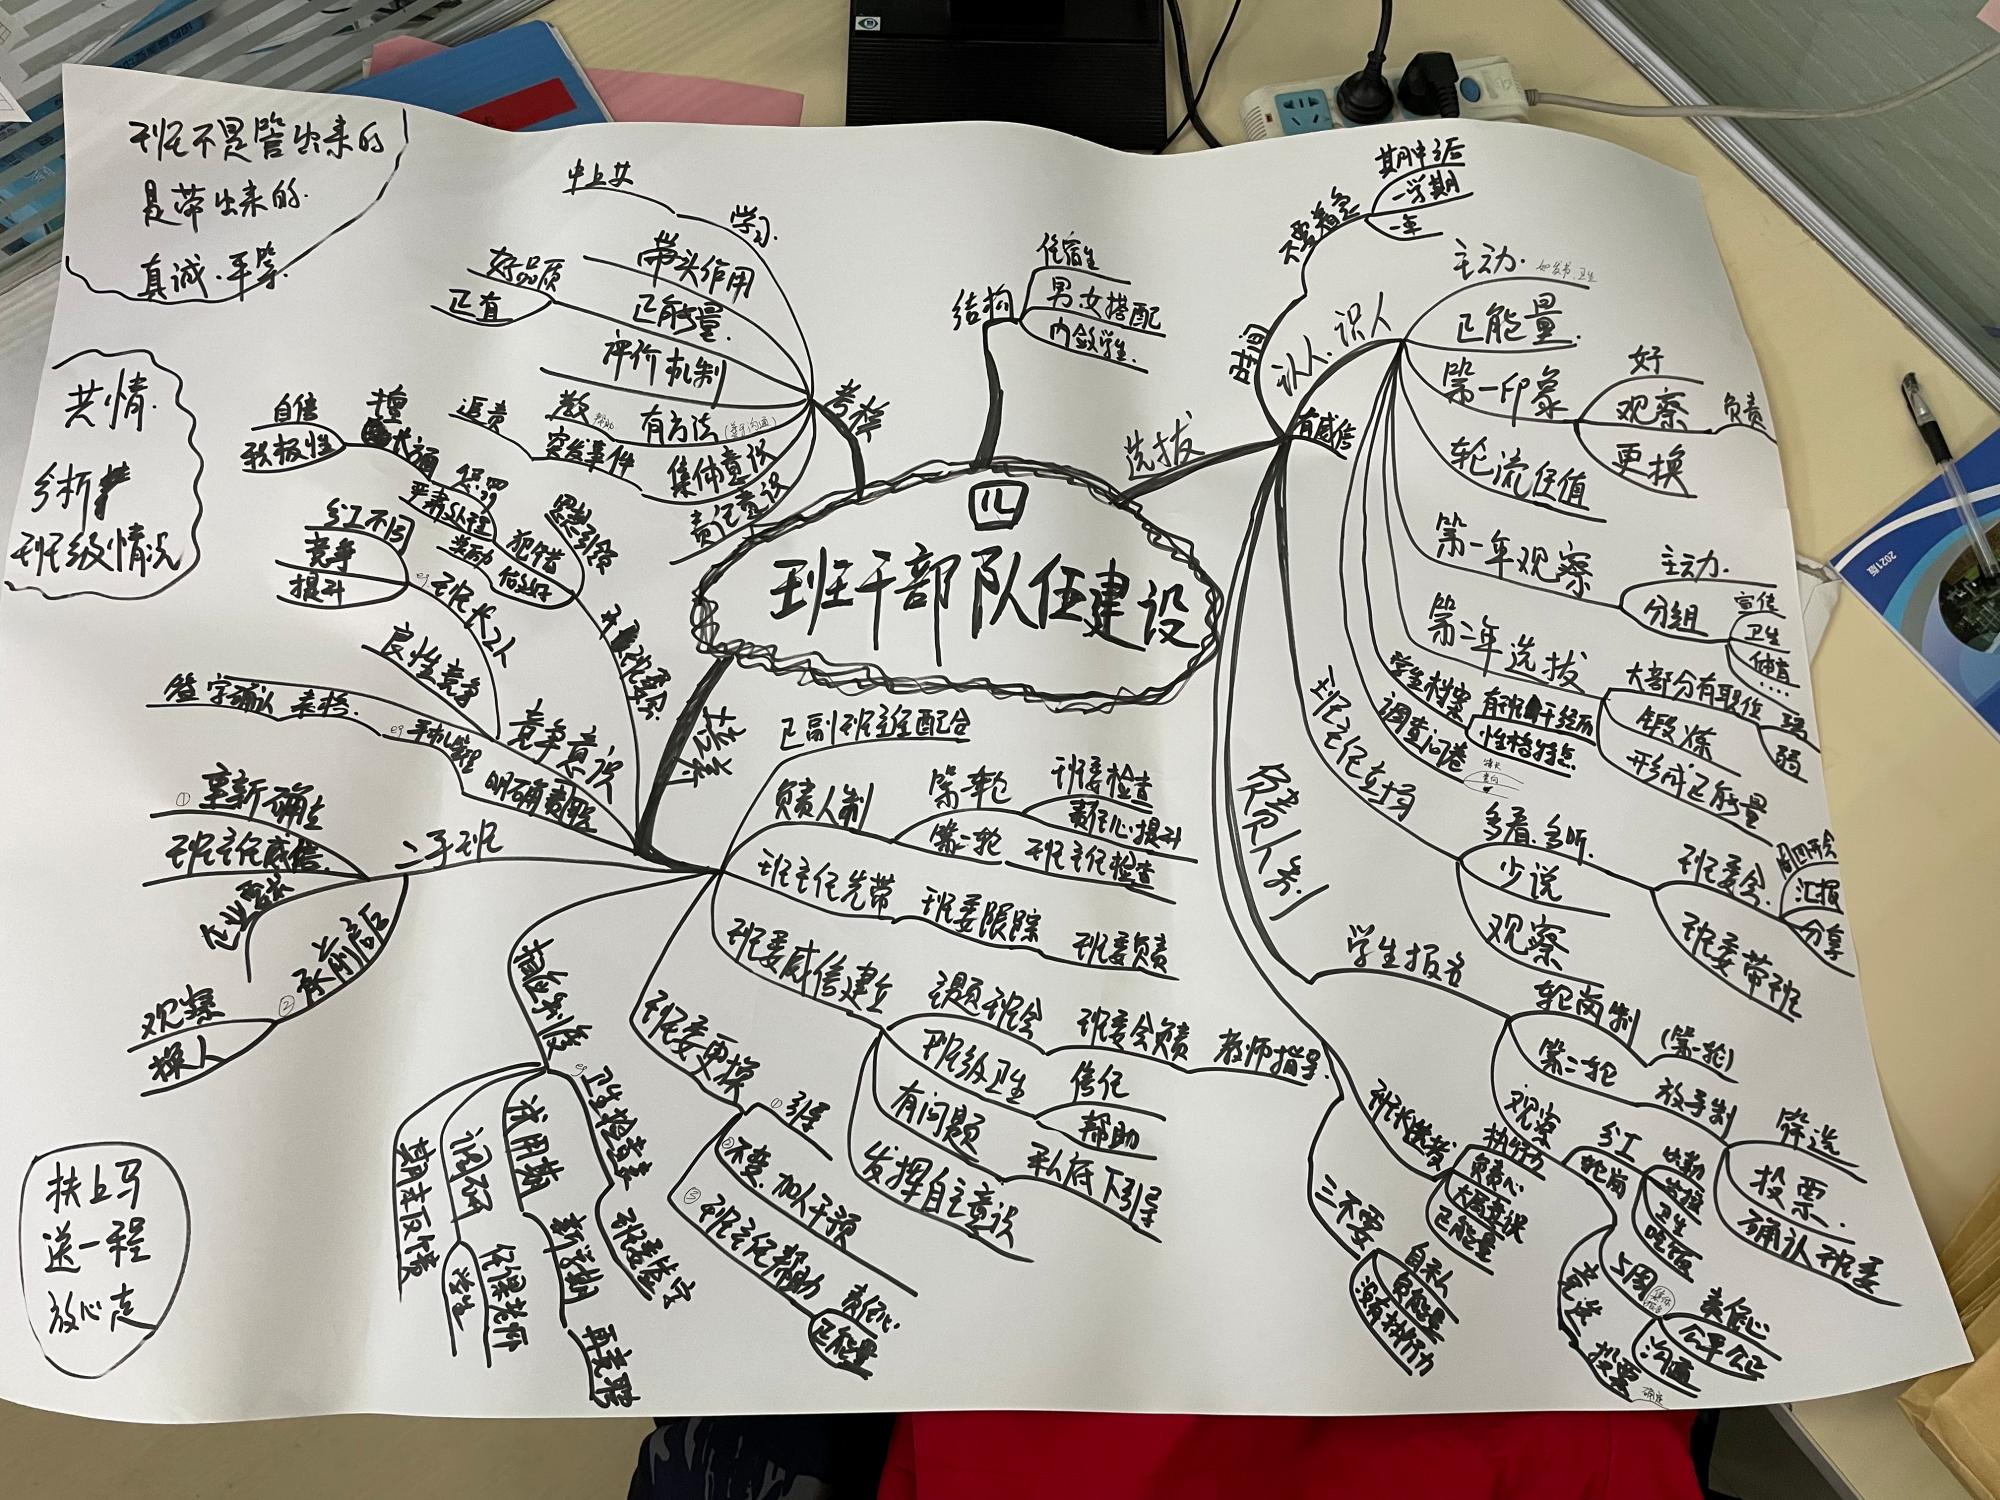 班不是管出来的
是带出来的.
真诚.平等.
共情.
分析
班级情况
扶上马
送一程
放心走
四
班干部队伍建设
结构
住宿生
男.女搭配
内敛学生.
选拔
有威信
时间
不要着急
期中之后
一学期
一年
认人.识人
主动.
如发书.卫生
正能量.
第一印象
好
观察
负责
更换
轮流任值
第一年观察
主动.
分组
宣传
卫生
体育
....
第二年选拔
大部分有职位
锻炼
强
弱
形成正能量
学生档案
调查问卷
有班干经历
性格特点.
班主任立场
多看.多听.
少说
观察
班委会.
周四开会
汇报
分享
班委带班
学生报名
轮岗制
(第一轮)
第二轮
放手制
观察
筛选
投票.
确认班委
分工
轮岗
出勤
卫生
吃饭
5周
竞选
投票
确定
责任心
公平公正
沟通
班长选拔
执行力
负责心
大局意识
正能量
三不要
自私
负能量
没有执行力
培养
正副班主任配合
负责人制
第一轮
班委检查
责任心提升
第二轮
班主任检查
班主任先带
班委跟踪
班委负责
班委威信建立
主题班会
班委会负责
教师指导
班级卫生
信任
帮助
有问题
私底下引导
发挥自主意识
班委更换
①引导
②不变.加人干预
③班主任帮助
责任心
正能量
eg
卫生检查表
班委签字
试用期
新学期
再竞聘
调研
任课老师
学生
期末反馈
二手班
①重新确立
班主任威信.
企业要求
②承前启后
观察
换人
明确责职
eg手机管理
签字确认
表格.
竞争意识
良性竞争
eg班长2人
分工不同
竞争
提升
开展班委会
思想引领
犯错
做得好
奖励
严肃处理
积极性
自信
考核
学习.
中上女
带头作用
正能量.
好品质
正有
评价机制
有方法
突发事件
追责
集体意识
责任意识
2021版